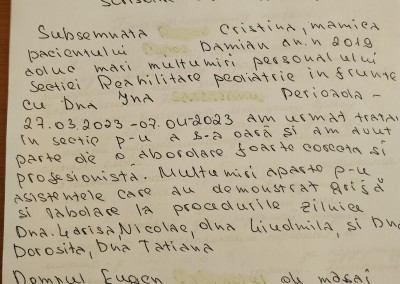 Subsemnata Cristina, mamica
pacientului Damian an.n 2019
aduc mari multumiri personalului
Sectiei Reabilitare pediatrie in frunte
cu Dna Yna Perioada -
27.03.2023-07.04-2023 am urmat trata
in sectie p-u a 5-a oară si am avut
parte de o abordare foarte corecta si
profesionistă. Multumiri aparte p-u
asistentele care au demonstrat grijă
si răbdare la procedurile zilnice
Dna. Larisa, Nicolae, dna Liudmila, si Dna
Dorosita, Dna Tatiana
Domnul Eugen de masaj